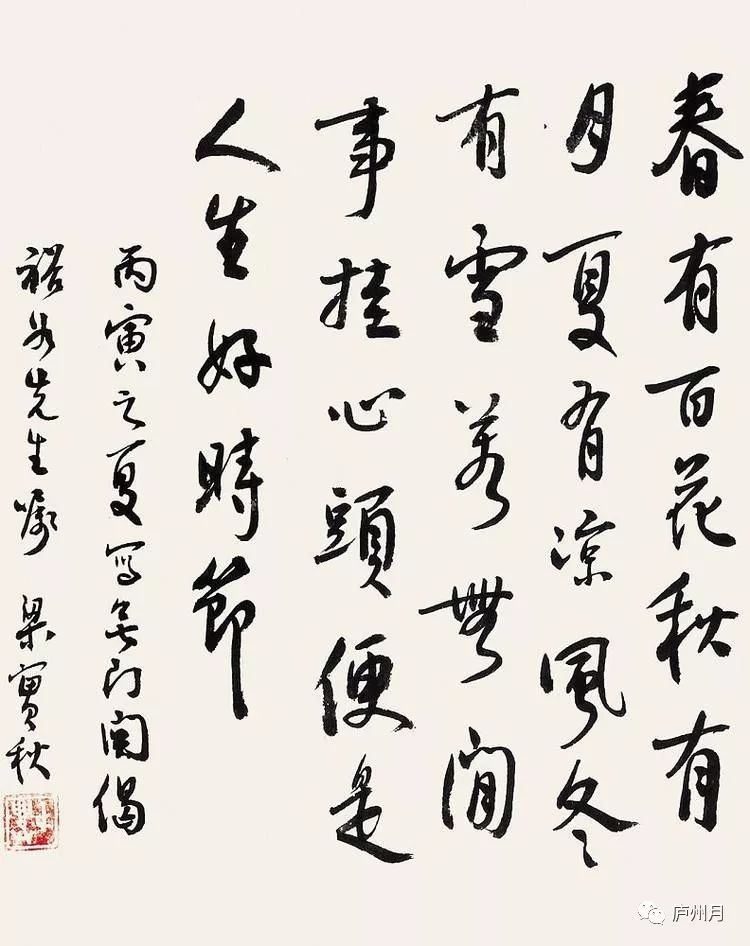 春有百花秋有
月夏有凉風冬
有雪若無閒
事挂心頭便是
人生好時節
丙寅之夏写無门関偈
裕珍先生嘱 梁實秋
庐州月